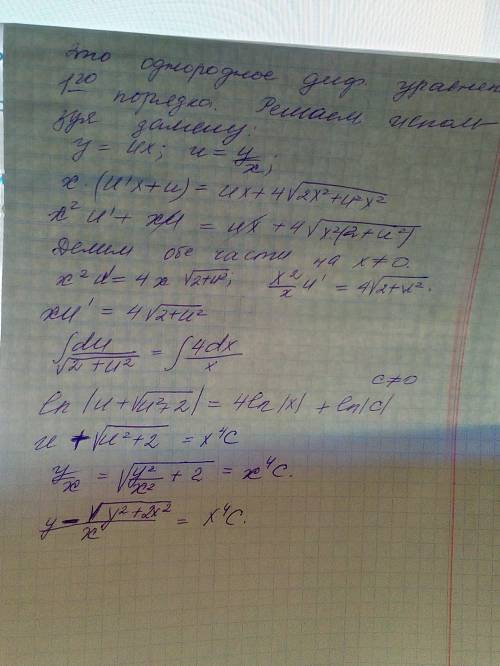 Это однородное диф. уравнен
1го порядка. Решаем испол
зуя замену:
y = ux; u = y/x;
x·(u'x+u) = ux+4√(2x²+u²x²)
x²u' + xu = ux + 4√(x²(2+u²))
Делим обе части на x≠0.
x²u' = 4x √(2+u²); x²/x u' = 4√(2+u²).
xu' = 4√(2+u²)
∫ du/√(2+u²) = ∫ 4dx/x
ln|u+√(u²+2)| = 4ln|x| + ln|C| C≠0
u + √(u²+2) = x⁴C
y/x = √(y²/x² + 2) = x⁴C.
(y - √(y²+2x²))/x = x⁴C.